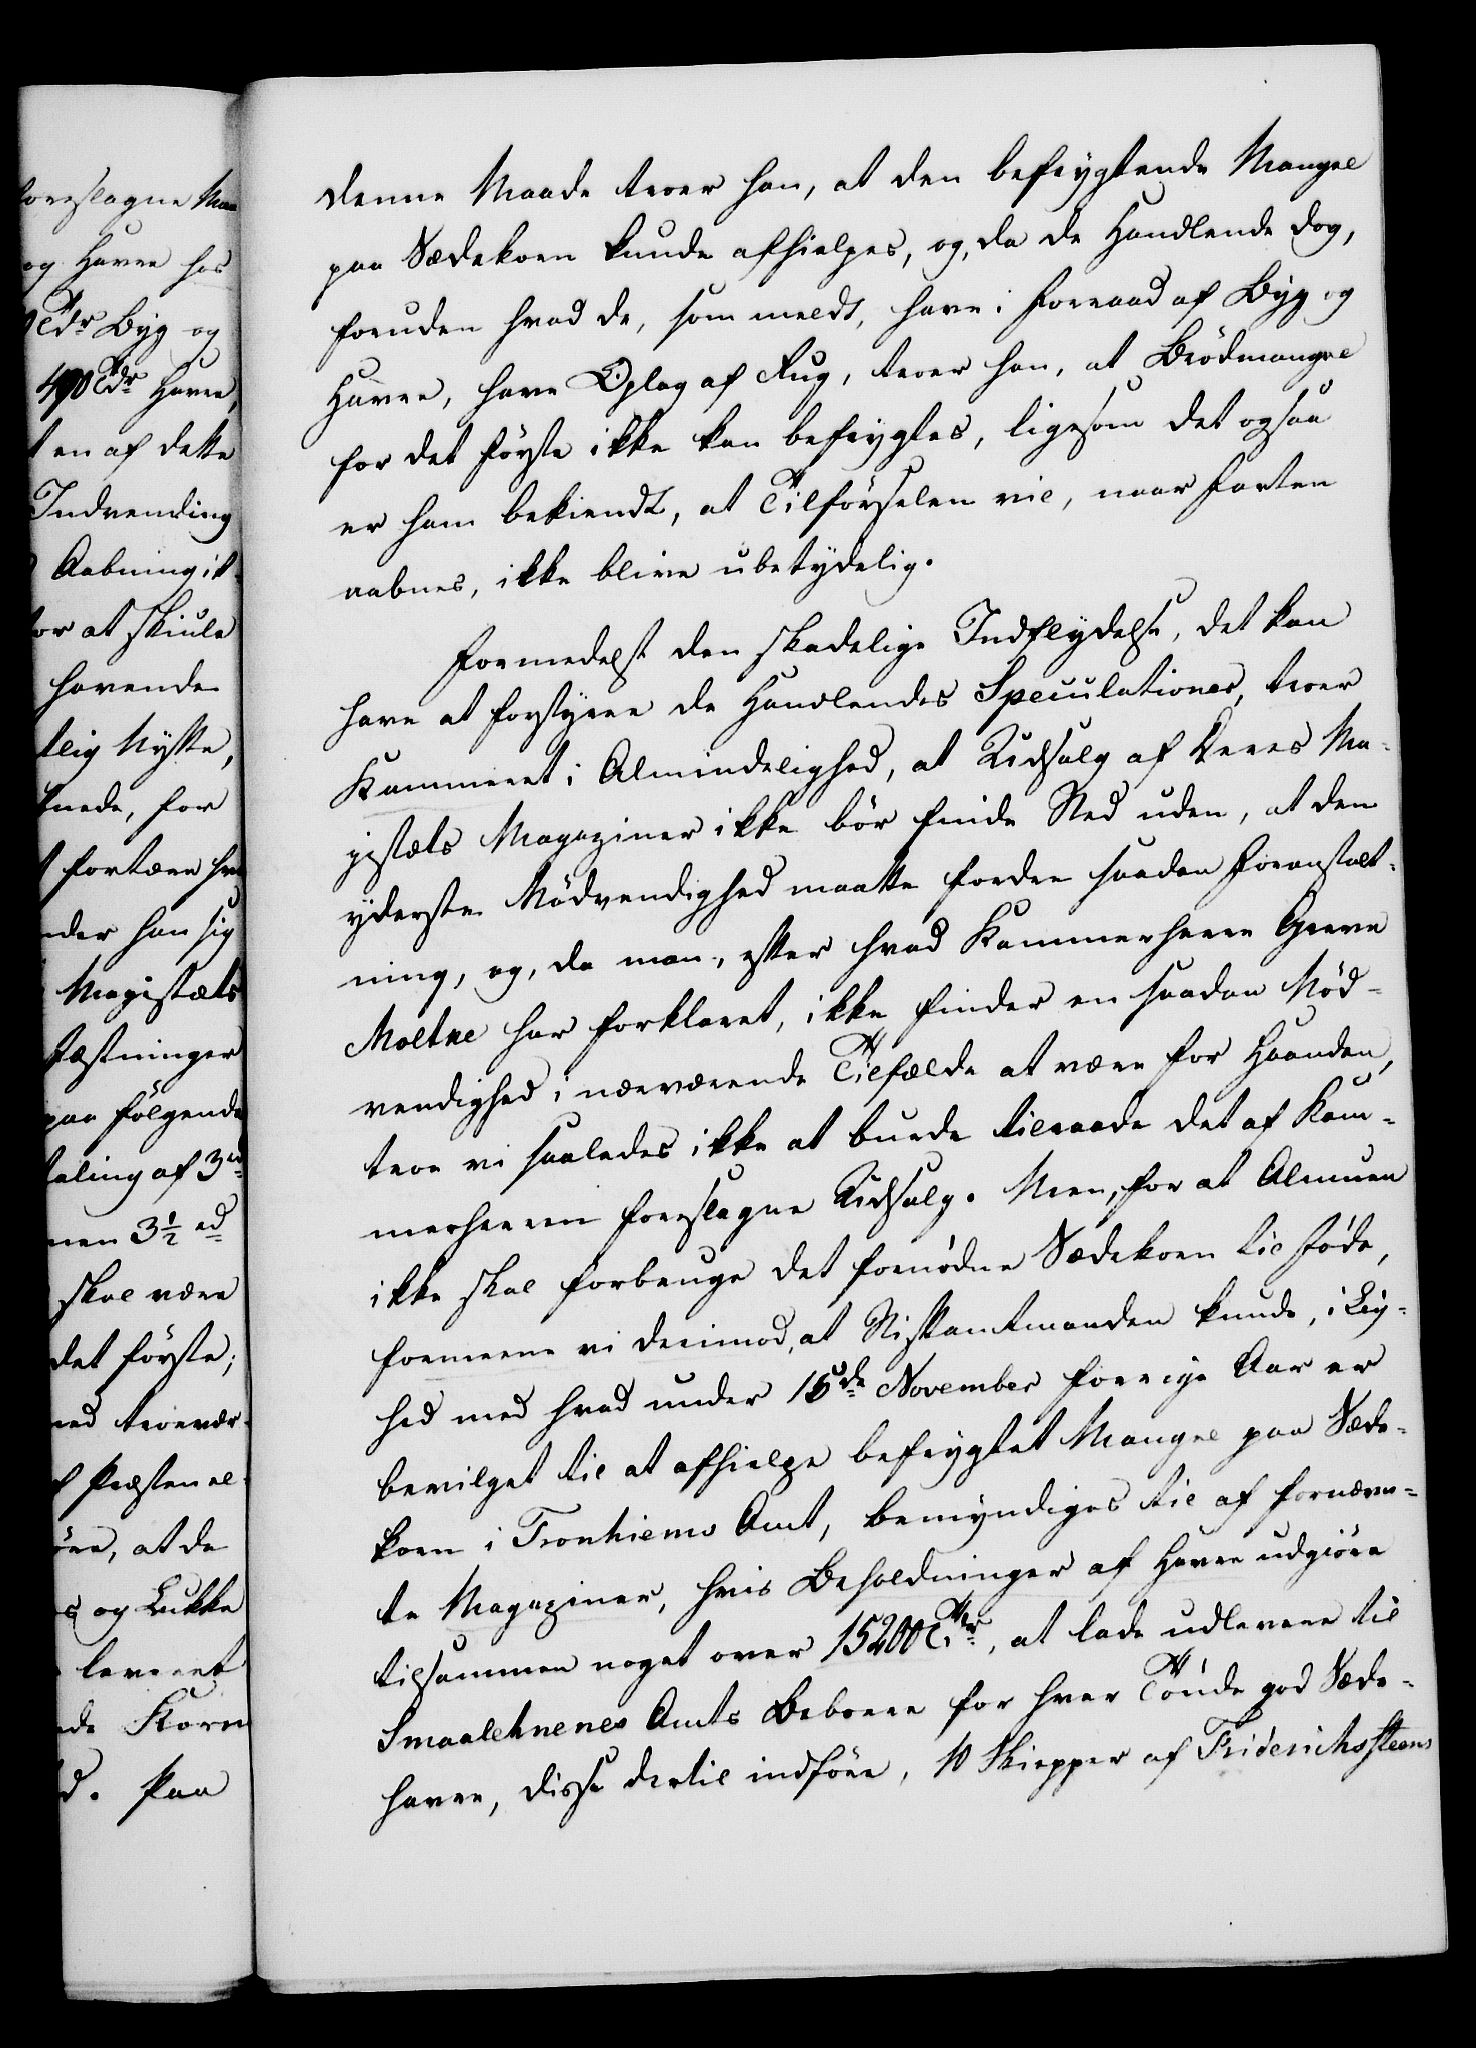 oreslagne Maa
og Havre hos
Tdr Byg og
490 Tdr Havre,
t en af dette
Indvending
Aabning ik-
for at skiule
havende
tlig Nytte,
nede, for
t fortære hv
nder han sig
Majestæts
Fæstninger
paa følgende
taling af 3
nen 3 1/2 rd
skal være
det første;
ned troevær-
f Præsten el-
øre, at de
s og Lukke
leveret
nde Korn
d. Paa
denne Maade troer han, at den befrygtende Mangel
paa Sædekorn kunde afhielpes, og, da de Handlende dog,
foruden hvad de, som meldt, have i Forraad af Byg og
Havre, have Oplag af Rug, troer han, at Brödmangel
for det förste ikke kan befrygtes, ligesom det ogsaa
er ham bekiendt, at Tilförselen vil, naar Farten
aabnes, ikke blive ubetydelig.
Formedelst den skadelige Indflydelse, det kan
have at forstyrre de Handlendes Speculationer, troer
Kammeret i Almindelighed, at Udsalg af Deres Ma-
jestæts Magaziner ikke bör finde Sted uden, at den
yderste Nödvendighed maatte fordre saadan Foranstalt-
ning, og, da man, efter hvad Kammerherre Greve
Moltke har forklaret, ikke finder en saadan Nöd-
vendighed i nærværende Tilfælde at være for Haanden,
troe vi saaledes ikke at burde tilraade det af Kam-
merherren foreslagne Udsalg. Men, for at Almuen
ikke skal forbruge det fornödne Sædekorn til Föde,
formeene vi derimod, at Stiftamtmanden kunde, i Liig-
hed med hvad under 15de November forrige Aar er
bevilget til at afhielpe befrygtet Mangel paa Sæde-
korn i Tronhiems Amt, bemyndiges til af fornævn-
te Magaziner, hvis Beholdninger af Havre udgiöre
tilsammen noget over 15200 Tdr, at lade udlevere til
Smaalehnenes Amts Beboere for hver Tönde god Sæde-
havre, disse dertil indföre, 10 Skiepper af Friderichssteens